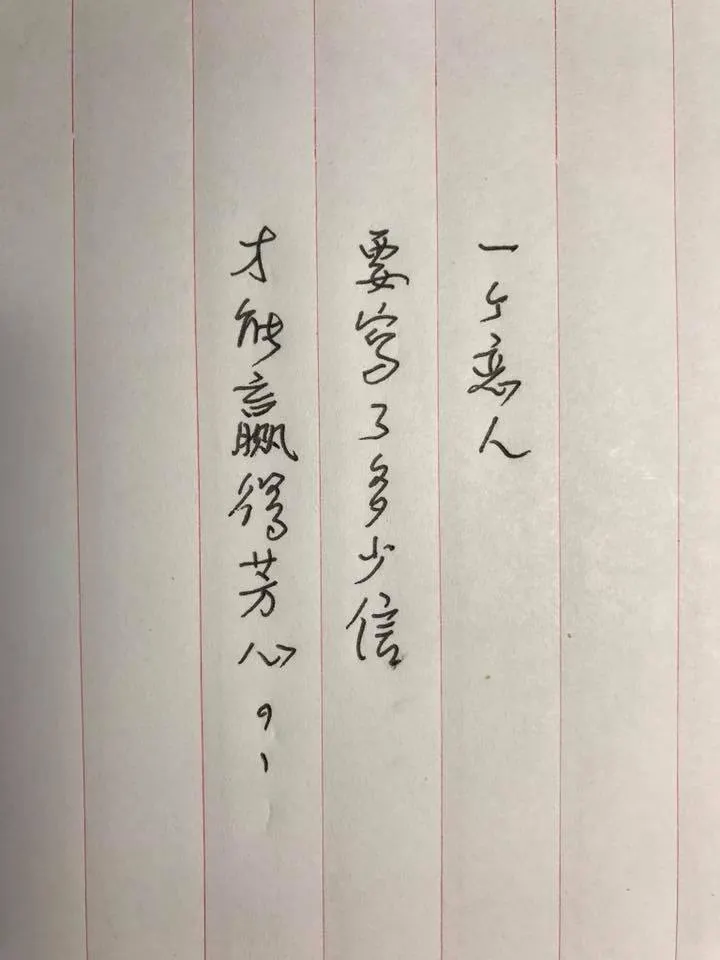 一个恋人
要写了多少信
才能赢得芳心？